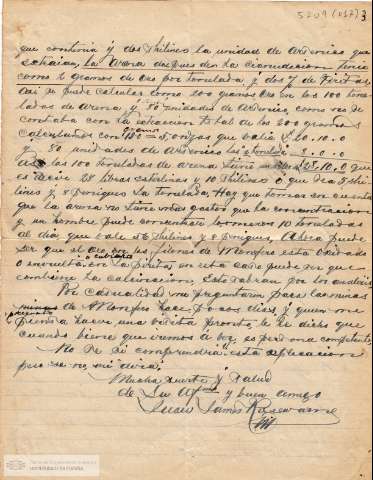 5209 (017) 3
que continua y dos Chilines la unidad de Arsenico que
la Arena despues de la tenia
como 2 gramos de oro por tonelada y dos % de Piritas,
Asi se puede calcular como 200 gramos oro en las 100 tone-
ladas de arena, y 80 unidades de Arsenico, como no se
contaba con la extraccion total de los 200 gramos
calculamos con gramos = 5 onzas que valia £ 20.10.0
y 80 unidades de Arsenico 8.0.0
Asi las 100 toneladas de arena tiene £ 28.10.0 que
es decir 28 libras esterlinas y 10 Chilines o que dia 5 chi-
lines y 8 peniques la tonelada. Hay que tomar en cuenta
que la arena no tiene mas gastos que la concentracion
y un hombre puede concentrar 10 toneladas
al dia, que vale 56 Chilines y 8 peniques, Ahora puede
ser que el oro en las de Monefro esta oxidado
o envuelto o cubierto con la pirita, en este caso puede ser que
combiene la calcinacion, Esto sabran por los analisis
Por casualidad me preguntaron para las minas
de Monefro hace pocos dias, y quien me
pregunto piensa hacer una visita pronto, le he dicho que
cuando biene que iremos a ver, es persona competente,
No se si comprendria esta esplicacion
pero se no, me dirá.
Mucha suerte y Salud
de Su Afmo y buen amigo
Juan James Rosewarne
UNIVERSIDADE DA CORUÑA